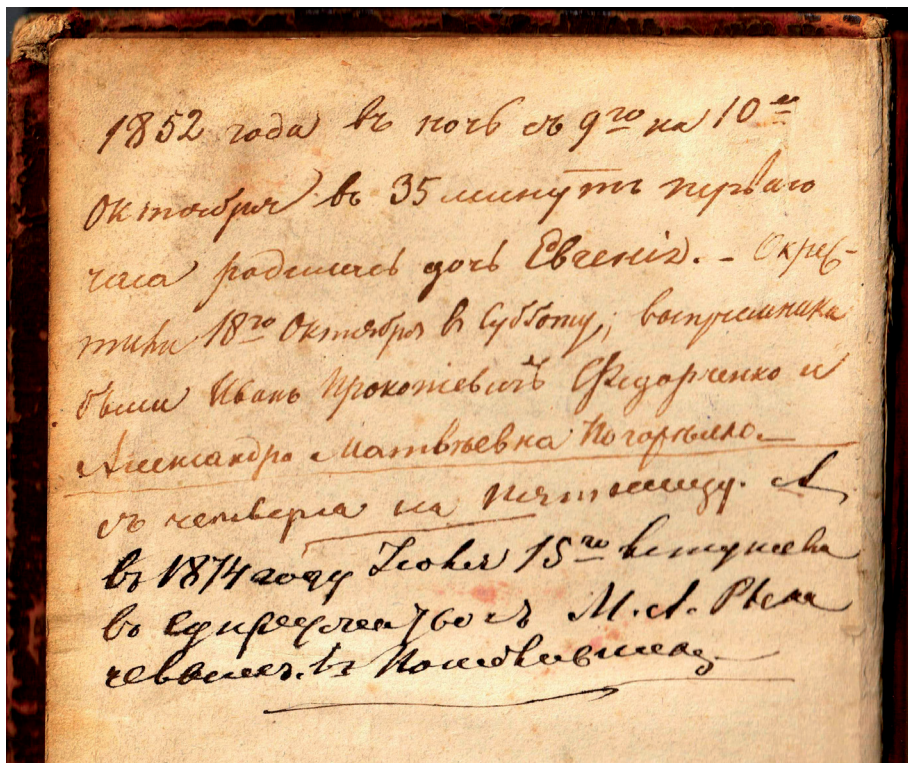 1852 года въ ночь съ 9го на 10е
Октября въ 35 минутъ перваго
часа родилась дочь Евгенія. – Окрес-
тили 18го Октября в Субботу; восприемника
были Иванъ Прокопіевичъ Федорченко и
Александра Матвѣевна Погорѣлко.
съ четверга на Пятницу. А
въ 1874 году Іюля 15го вступила
во съ М. А.
въ